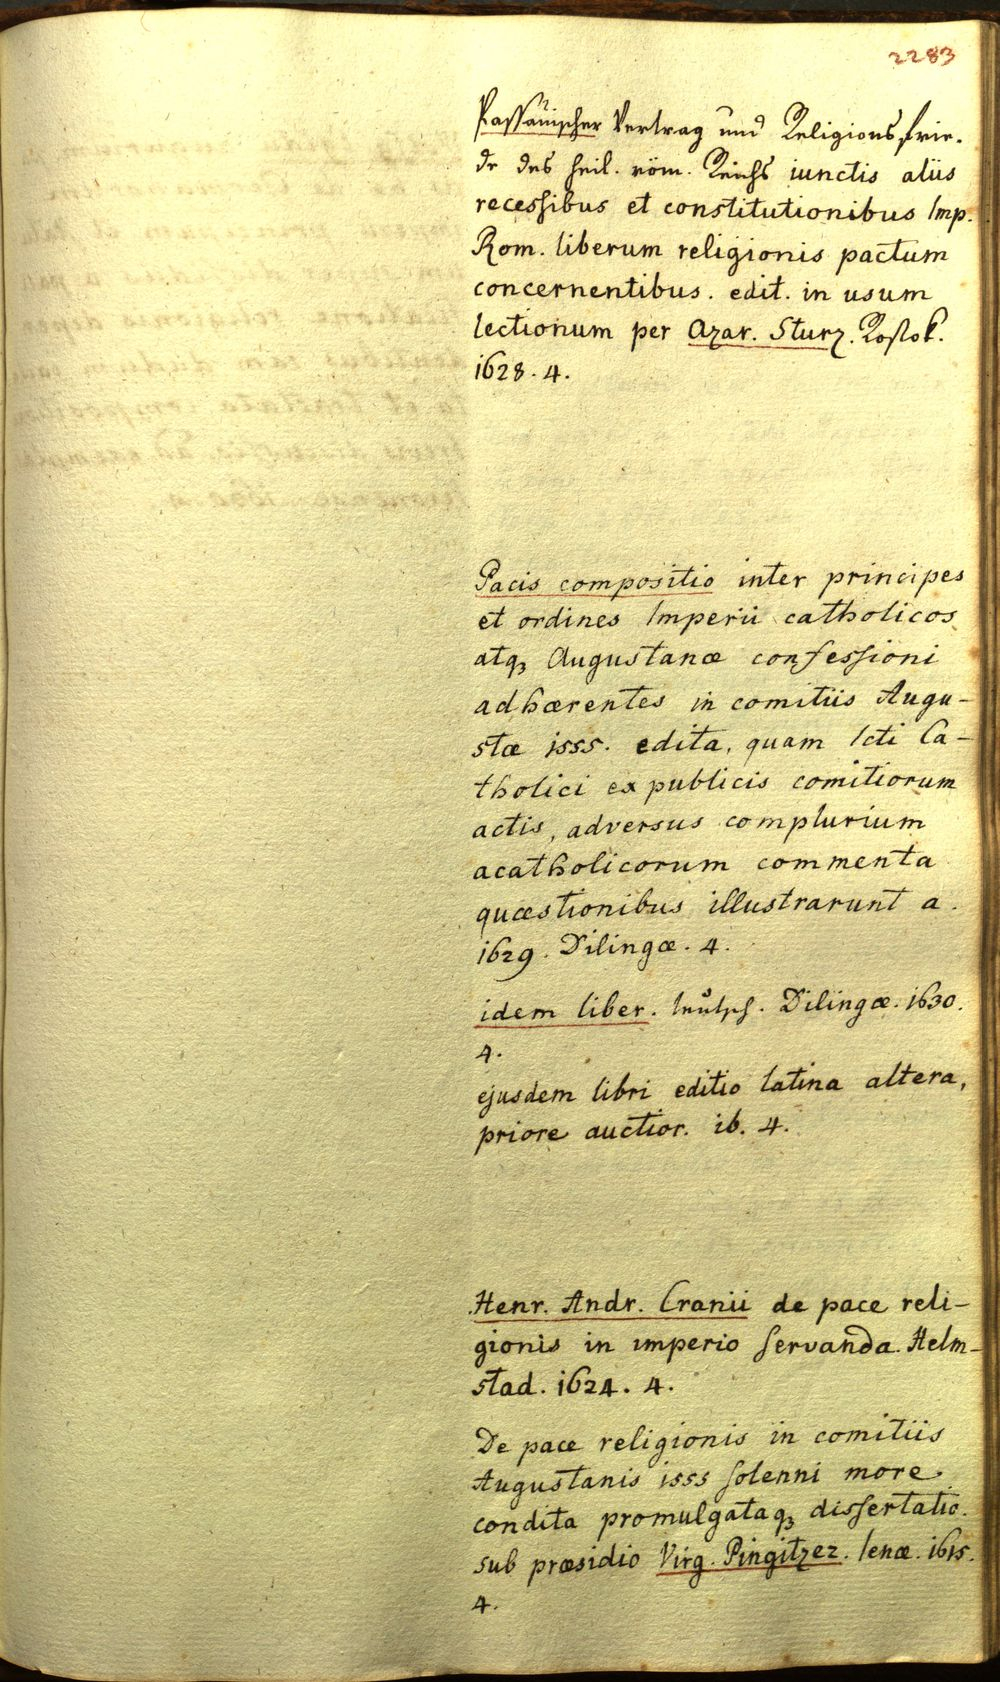 2283
Passauischer Vertrag und Religions frie-
de des heil. röm. Reichs iunctis aliis
recessibus et constitutionibus Imp.
Rom. liberum religionis pactum
concernentibus. edit. in usum
lectionum per Azar. Sturz. Rostok.
1628. 4.
Pacis compositio inter principes
et ordines Imperii catholicos
atqꝫ Augustanæ confessioni
adhærentes in comitiis Augu-
stæ 1555. edita, quam Icti Ca-
tholici ex publicis comitiorum
actis, adversus complurium
acatholicorum commenta
quæstionibus illustrarunt a.
1629. Dilingæ. 4.
idem liber. teutsch. Dilingæ. 1630.
4.
ejusdem libri editio latina altera,
priore auctior. ib. 4.
Henr. Andr. Cranii de pace reli-
gionis in imperio servanda. Helm-
stad. 1624. 4.
De pace religionis in comitiis
Augustanis 1555 solenni more
condita promulgataqꝫ dissertatio.
sub præsidio Virg. Pingitzer. Ienæ. 1615.
4.